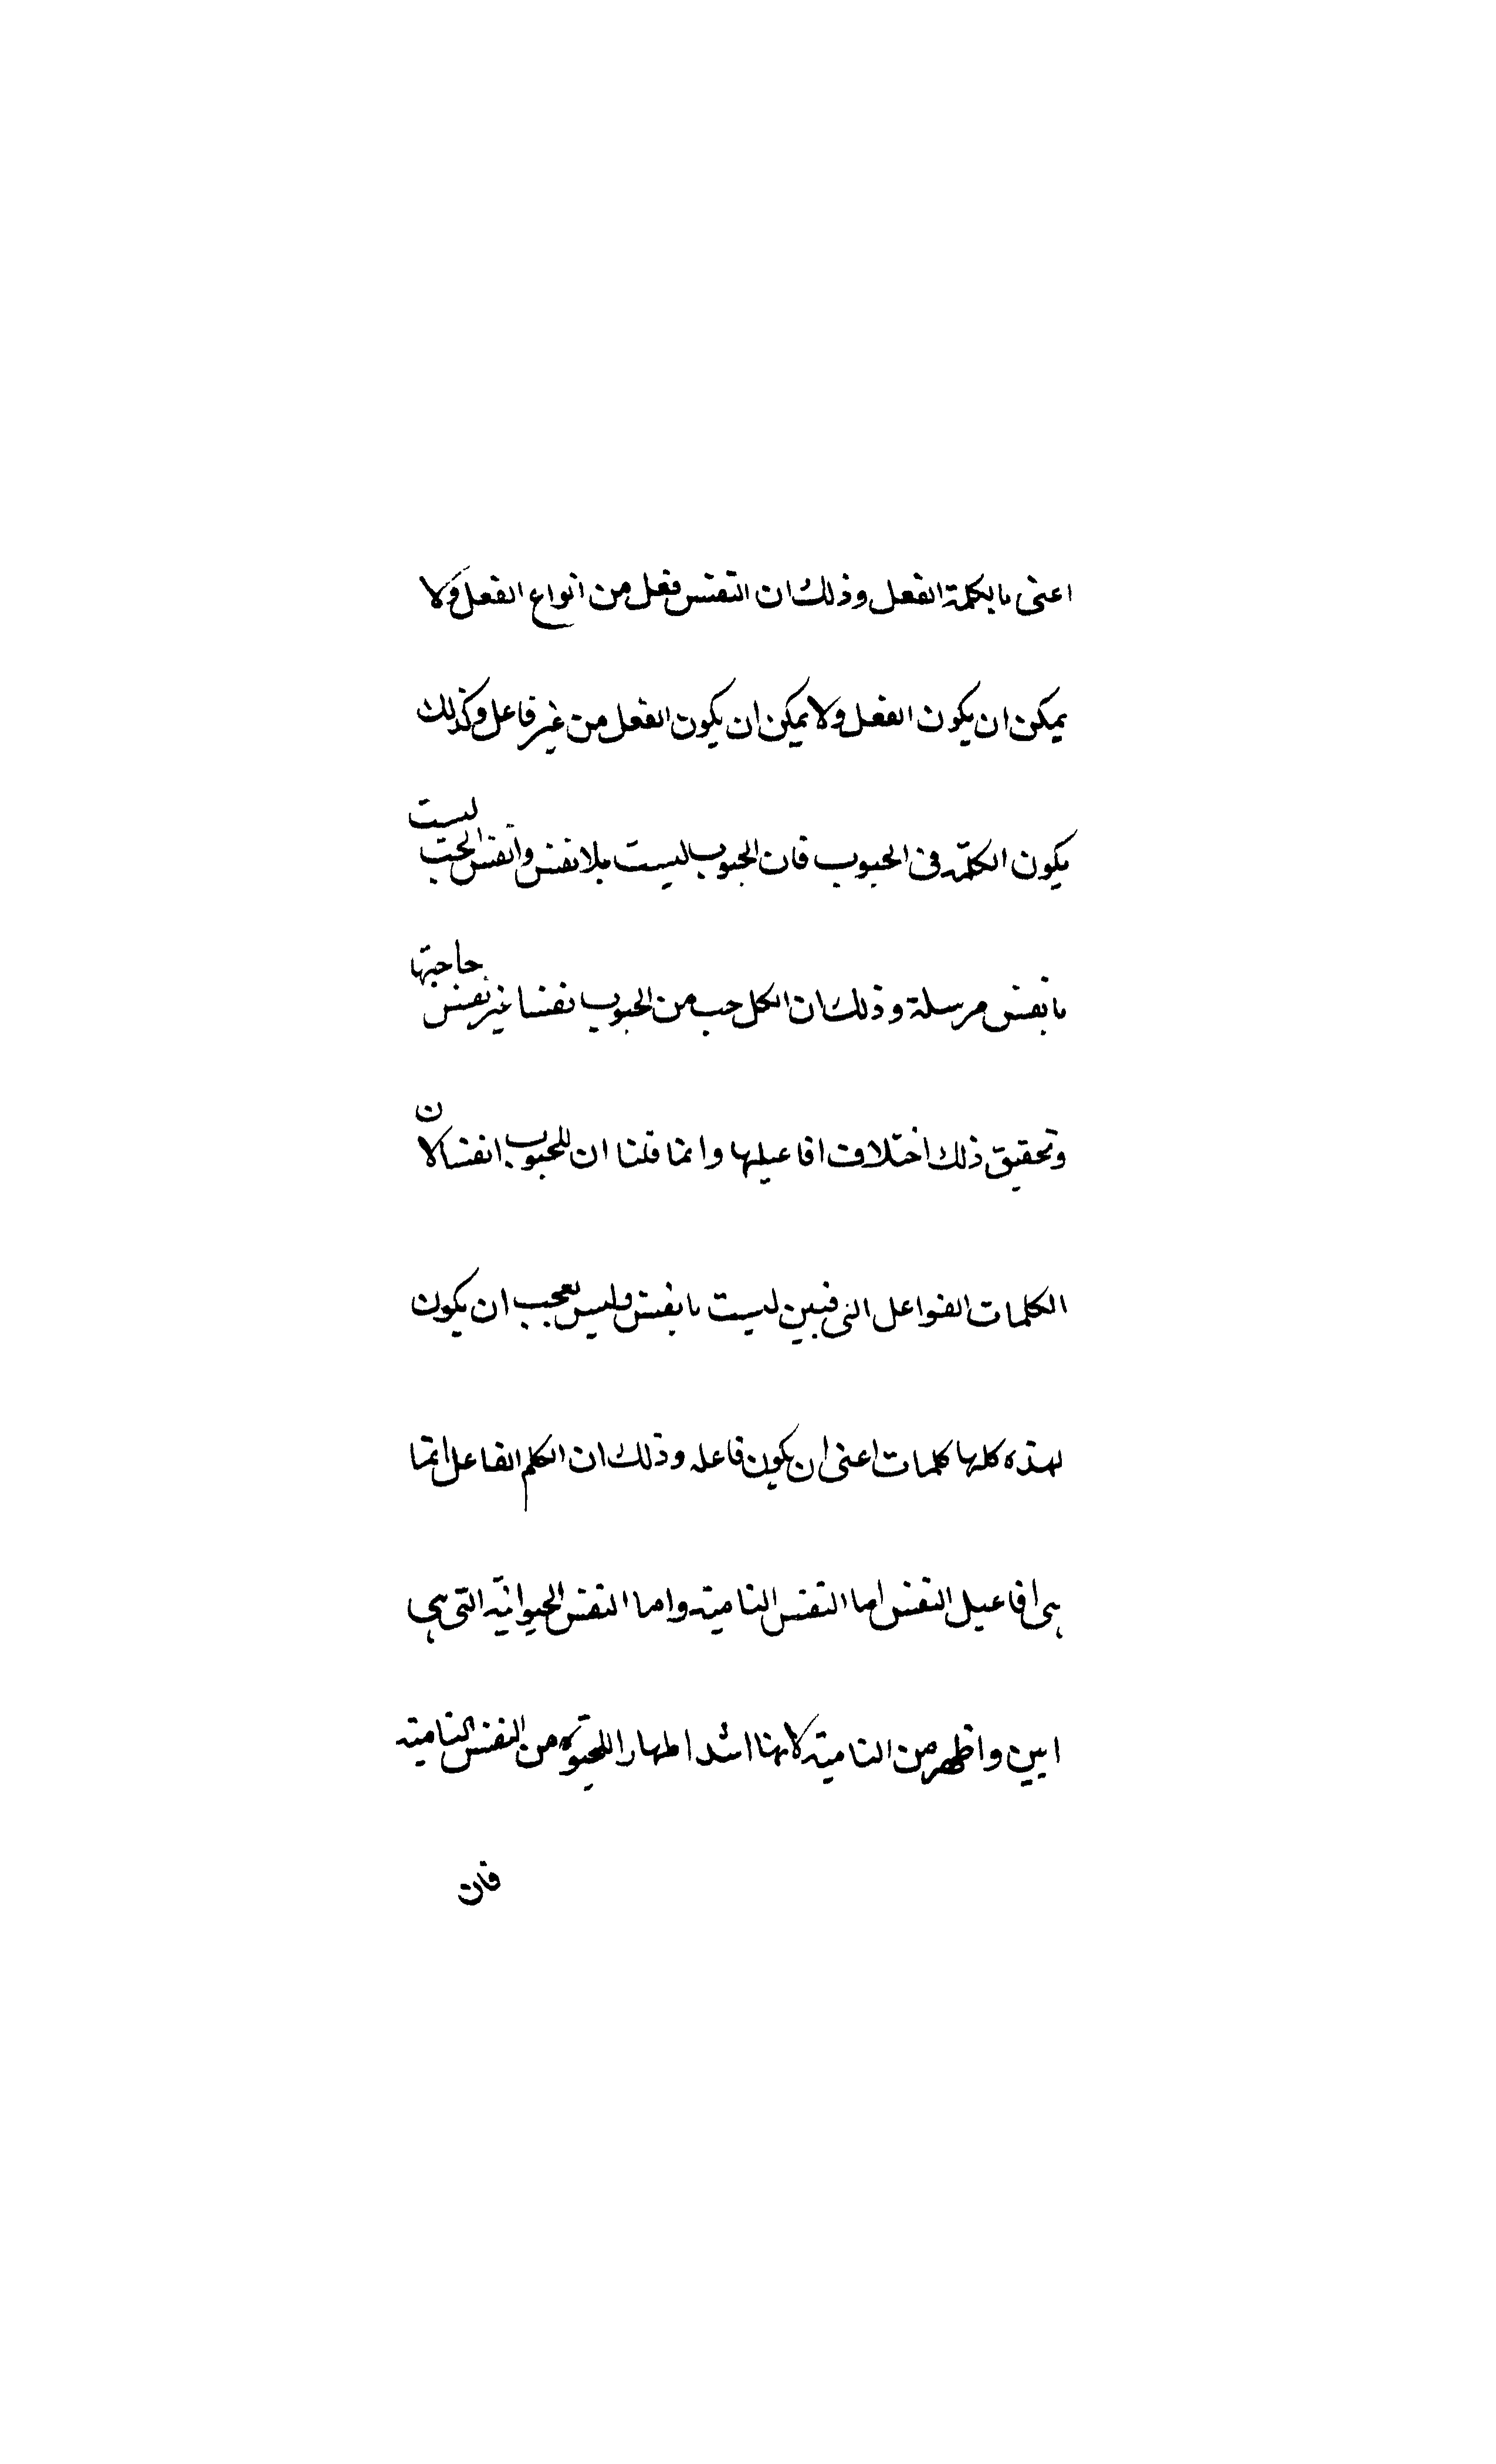 اعنى بالكلمة الفعل وذلك ان النفس فعل من انواع الفعل ولا
يمكن ان يكون الفعل ولا يمكن ان يكون الفعل من غير فاعل وكذلك
يكون الكلمة فى الحبوب فان الحبوب ليست بلا نفس وانفس الحب ليست
بانفس مرسلة وذلك ان الكل حب من الحبوب نفسا غير نفس صاحبها
وتحقيق ذلك اختلاف افاعيلها وانما قلنا ان للحبوب انفسا لان
الكلمات الفواعل التى فيهن ليست بانفس وليس بعجب ان يكون
لهذه كلها كلمات اعنى ان يكون فاعله وذلك ان الكلم الفاعل انما
هى افاعيل النفس اما النفس الناميه واما النفس الحيوانيّه التى هى
ابين واظهر من الناميه لانها اشد اظهارا للحيوة من النفس الناميه
فان